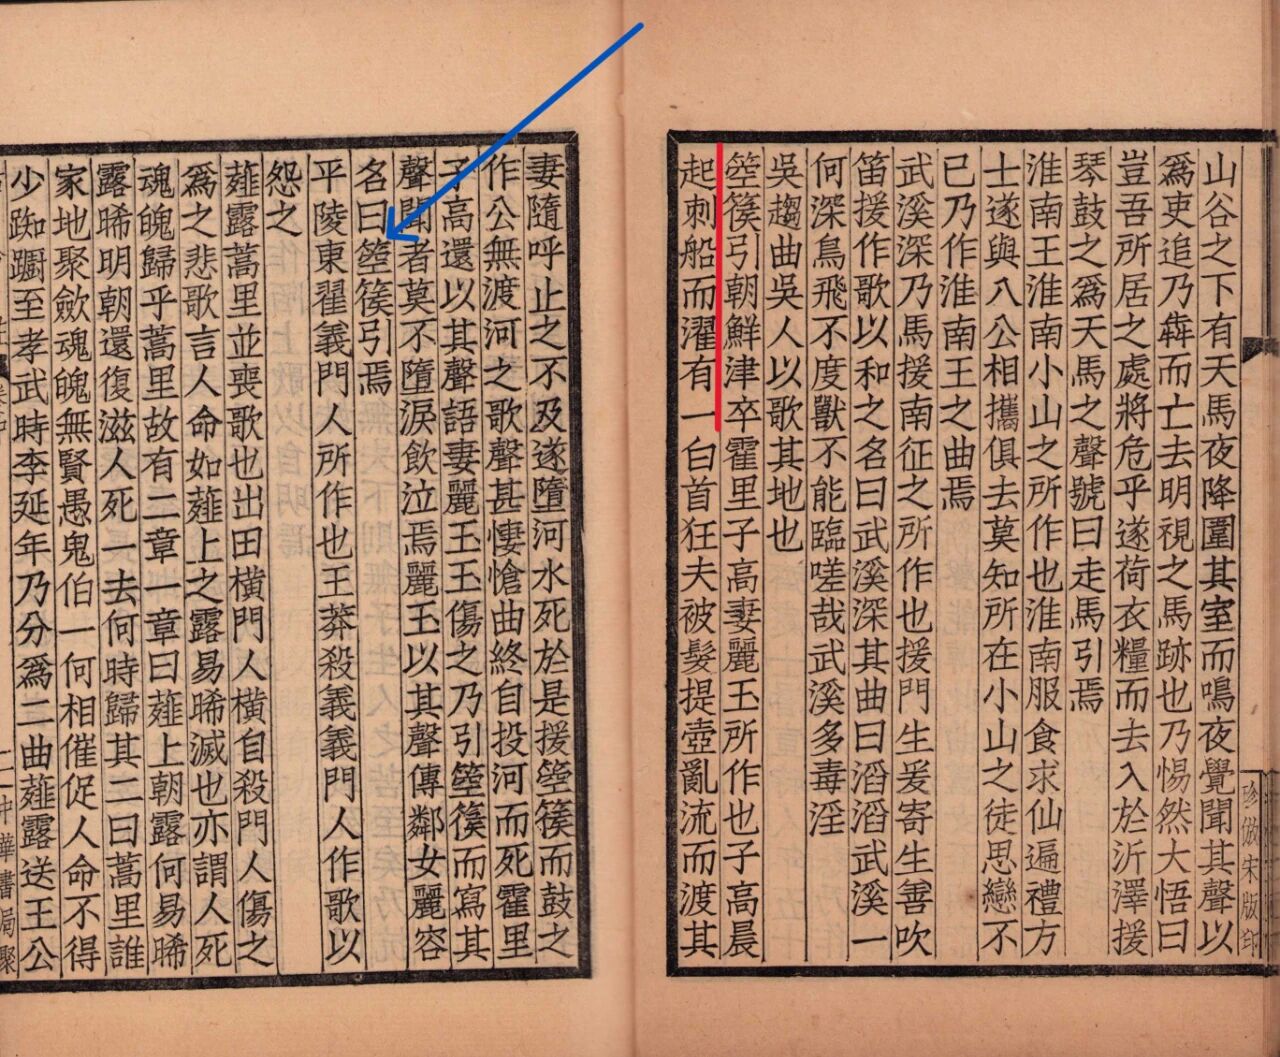 珍倣宋版印
山谷之下有天馬夜降圍其室而鳴夜覺聞其聲以
爲吏追乃犇而亡去明視之馬跡也乃惕然大悟曰
豈吾所居之處將危乎遂荷衣糧而去入於沂澤援
琴鼓之爲天馬之聲號曰走馬引焉
淮南王淮南小山之所作也淮南服食求仙遍禮方
士遂與八公相攜俱去莫知所在小山之徒思戀不
已乃作淮南王之曲焉
武溪深乃馬援南征之所作也援門生爰寄生善吹
笛援作歌以和之名曰武溪深其曲曰滔滔武溪一
何深鳥飛不度獸不能臨嗟哉武溪多毒淫
吳趨曲吳人以歌其地也
箜篌引朝鮮津卒霍里子高妻麗玉所作也子高晨
起刺船而濯有一白首狂夫被髮提壺亂流而渡其
妻隨呼止之不及遂墮河水死於是援箜篌而鼓之
作公無渡河之歌聲甚悽愴曲終自投河而死霍里
子高還以其聲語妻麗玉玉傷之乃引箜篌而寫其
聲聞者莫不墮淚飲泣焉麗玉以其聲傳鄰女麗容
名曰箜篌引焉
平陵東翟義門人所作也王莽殺義義門人作歌以
怨之
薤露蒿里並喪歌也出田橫門人橫自殺門人傷之
爲之悲歌言人命如薤上之露易晞滅也亦謂人死
魂魄歸乎蒿里故有二章一章曰薤上朝露何易晞
露晞明朝還復滋人死一去何時歸其二曰蒿里誰
家地聚歛魂魄無賢愚鬼伯一何相催促人命不得
少踟躕至孝武時李延年乃分爲二曲薤露送王公
中華書局聚